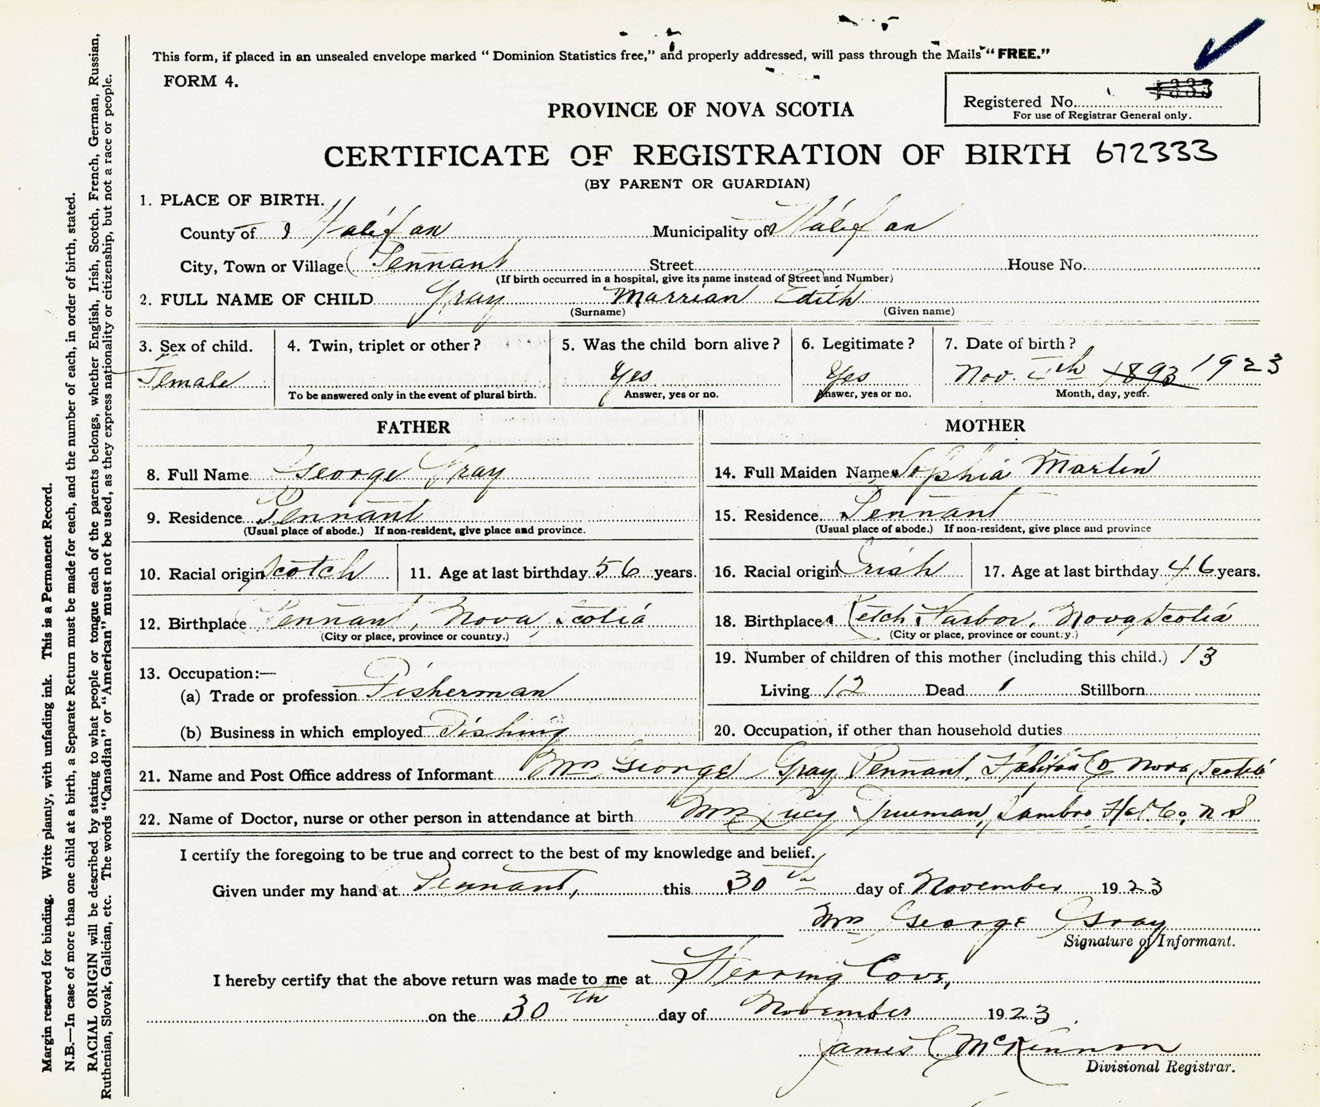 This form, if placed in an unsealed envelope marked "Dominion Statistics free," and properly addressed, will pass through the Mails "FREE."
FORM 4.
Registered No.
For use of Registrar General only.
PROVINCE OF NOVA SCOTIA
CERTIFICATE OF REGISTRATION OF BIRTH 672333
(BY PARENT OR GUARDIAN)
1. PLACE OF BIRTH.
County of Halifax Municipality of Halifax
City, Town or Village Pennant Street House No.
(If birth occurred in a hospital, give its name instead of Street and Number)
2. FULL NAME OF CHILD Gray Marrian Edith
(Surname) (Given name)
3. Sex of child. 4. Twin, triplet or other? 5. Was the child born alive? 6. Legitimate? 7. Date of birth?
Female Yes Yes Nov. 1893 1923
To be answered only in the event of plural birth. Answer, yes or no. Answer, yes or no. Month, day, year.
FATHER MOTHER
8. Full Name George Gray 14. Full Maiden Name Sophia Martin
9. Residence Pennant 15. Residence Pennant
(Usual place of abode.) If non-resident, give place and province. (Usual place of abode.) If non-resident, give place and province
10. Racial origin Scotch 11. Age at last birthday 56 years. 16. Racial origin Irish 17. Age at last birthday 46 years.
12. Birthplace Pennant, Nova Scotia 18. Birthplace Ketch Harbor, Nova Scotia
(City or place, province or country.) (City or place, province or country.)
19. Number of children of this mother (including this child.) 13
13. Occupation:—
(a) Trade or profession Fisherman Living 12 Dead 1 Stillborn
(b) Business in which employed Fishing 20. Occupation, if other than household duties
21. Name and Post Office address of Informant Mrs George Gray Pennant, Halifax Co Nova Scotia
22. Name of Doctor, nurse or other person in attendance at birth Mrs Lucy Sambro, Hal Co, N S
I certify the foregoing to be true and correct to the best of my knowledge and belief.
Given under my hand at Pennant, this 30th day of November 1923
Mrs George Gray
Signature of Informant.
I hereby certify that the above return was made to me at Herring Cove,
on the 30th day of November 1923
James C McKinnon
Divisional Registrar.
Margin reserved for binding. Write plainly, with unfading ink. This is a Permanent Record.
N.B.—In case of more than one child at a birth, a Separate Return must be made for each, and the number of each, in order of birth, stated.
RACIAL ORIGIN will be described by stating to what people or tongue each of the parents belongs, whether English, Irish, Scotch, French, German, Russian,
Ruthenian, Slovak, Galician, etc. The words "Canadian" or "American" must not be used, as they express nationality or citizenship, but not a race or people.